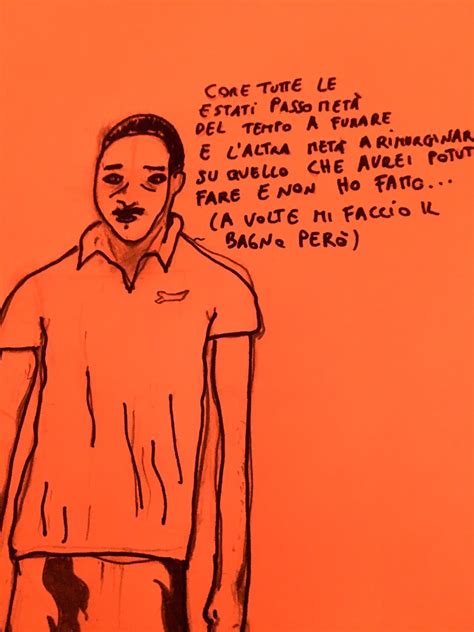 COME TUTTE LE
ESTATI PASSO METÀ
DEL TEMPO A FUMARE
E L'ALTRA METÀ A RIMURGINAR
SU QUELLO CHE AUREI POTUT
FARE E NON HO FATTO...
(A VOLTE MI FACCIO IL
BAGNO PERÒ)